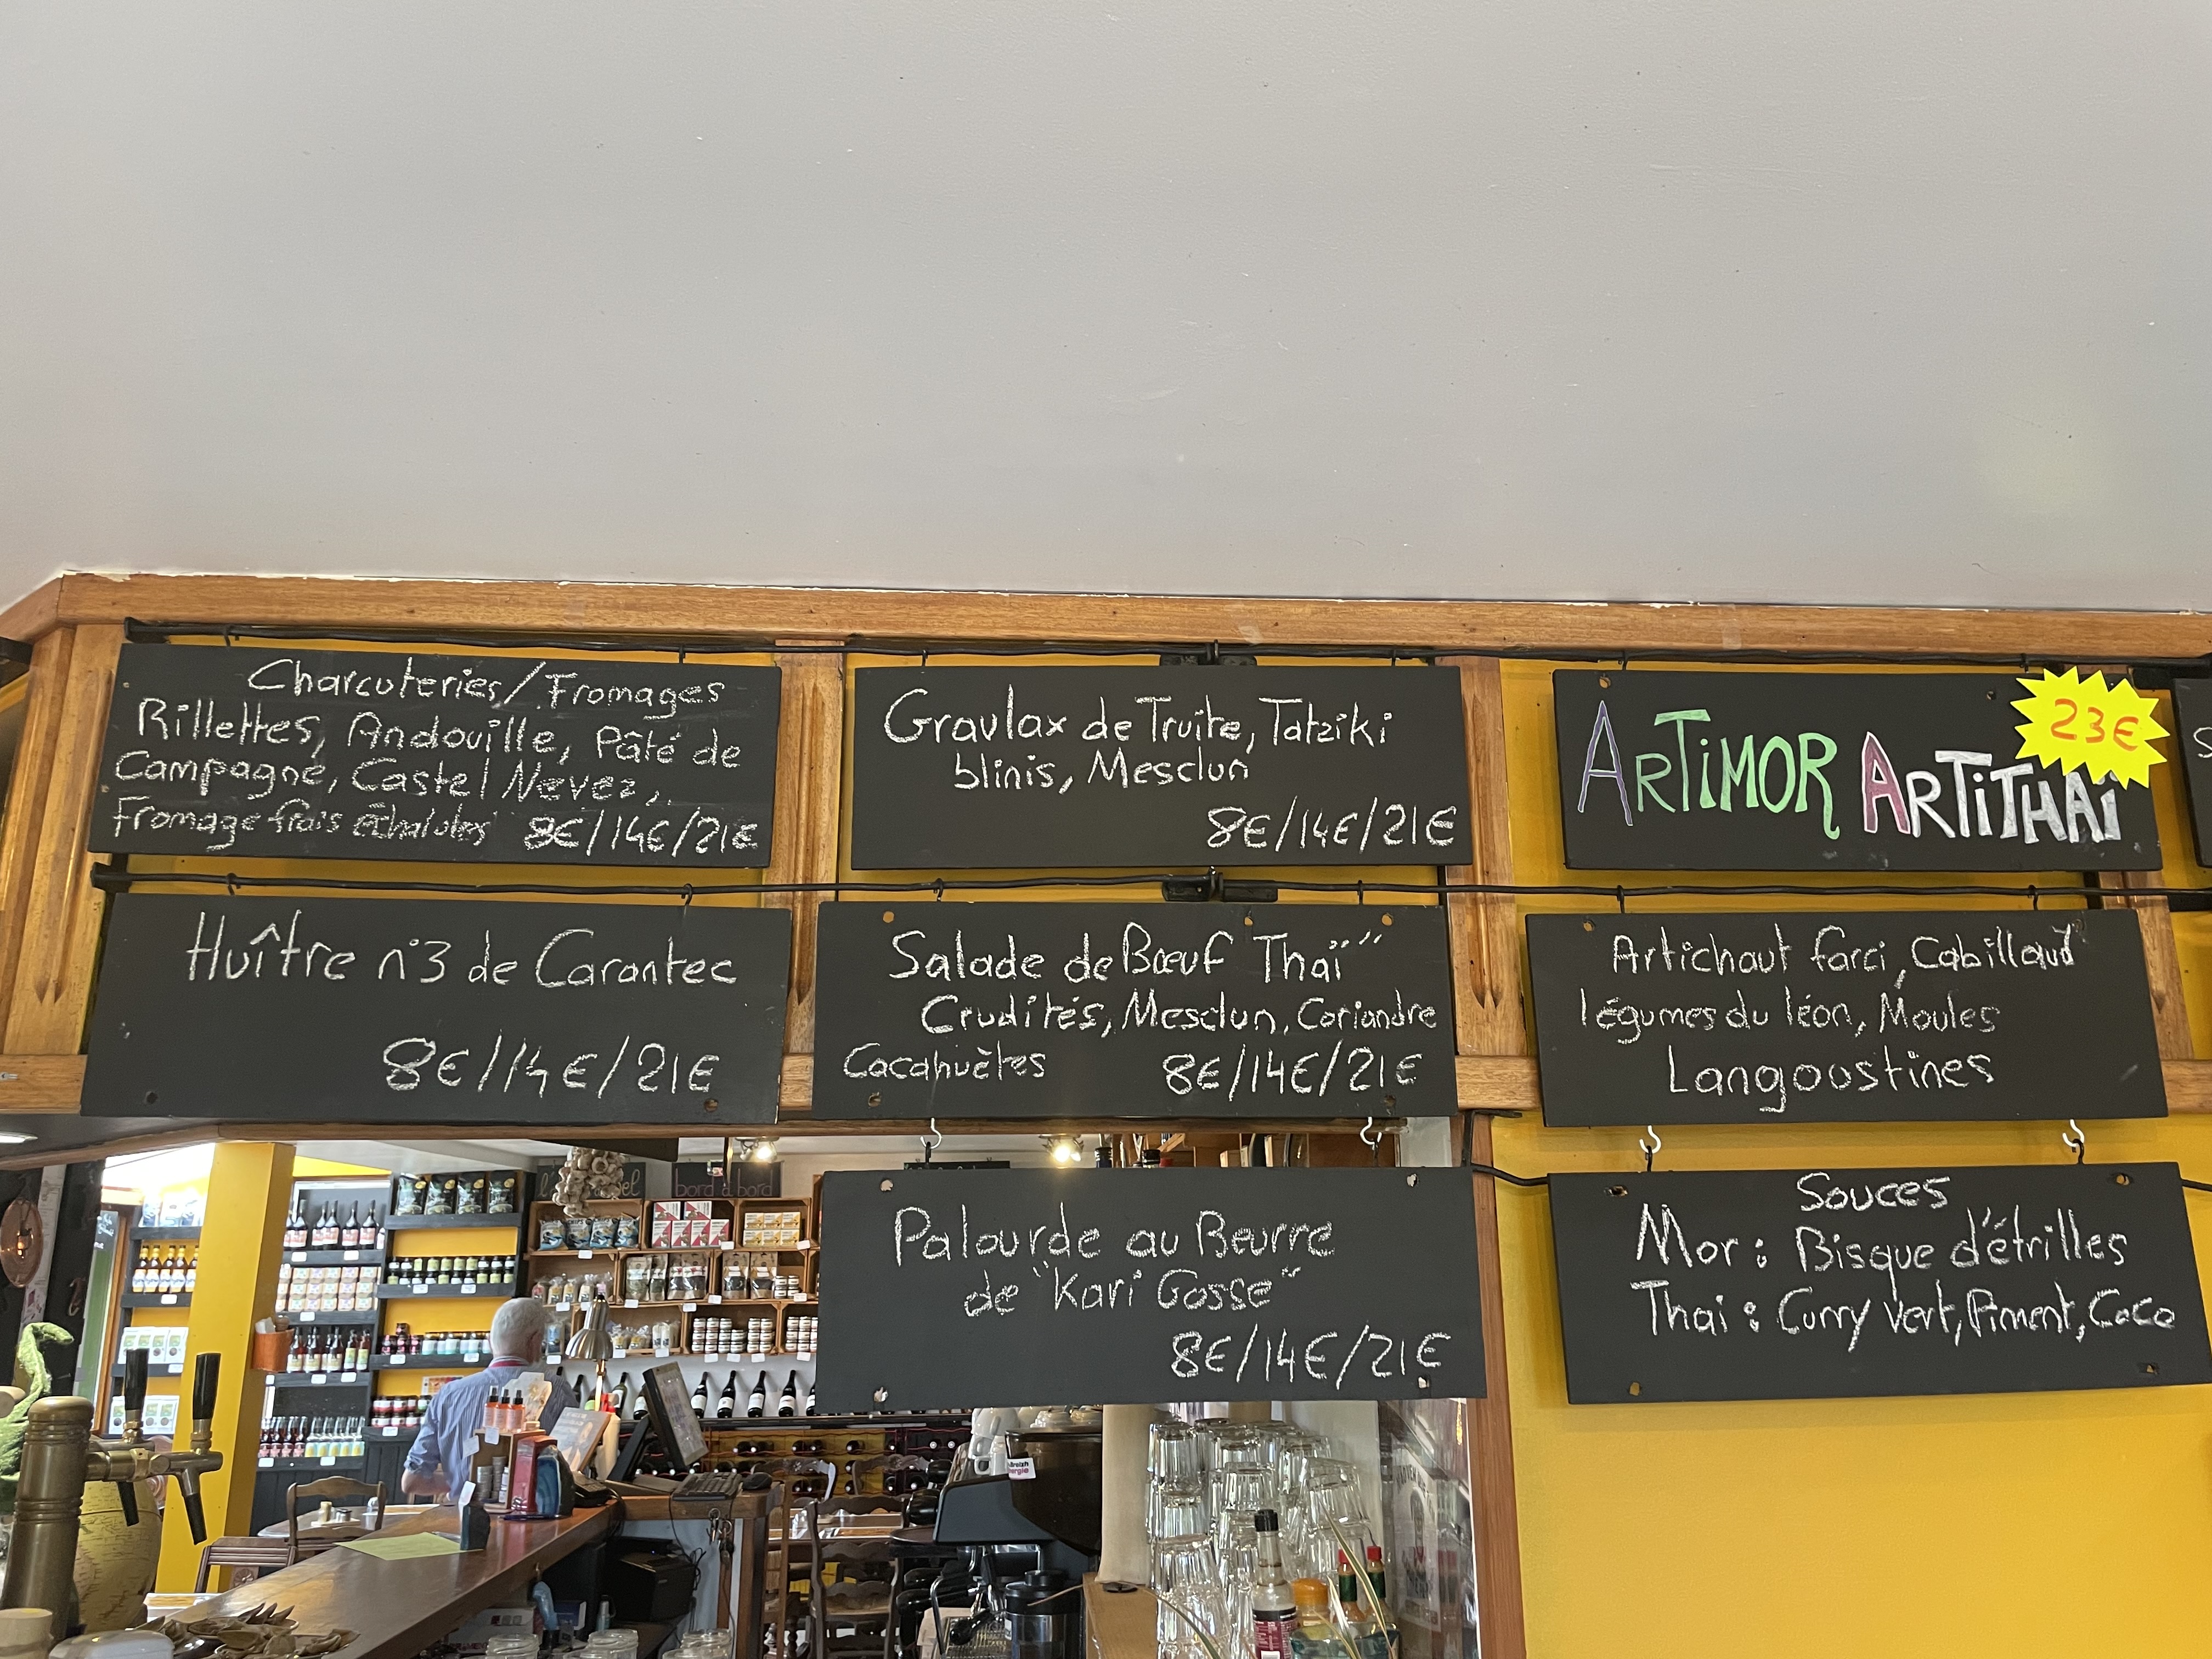 Charcuteries/Fromages
Rillettes, Andouille, Pâté de
Campagne, Castel Nevez,
Fromage frais Échalotes 8€/14€/21€
Huître n°3 de Carantec
8€/14€/21€
Gravlax de Truite, Tatziki
blinis, Mesclun
8€/14€/21€
Salade de Bœuf Thaï"
Crudités, Mesclun, Coriandre
Cacahuètes 8€/14€/21€
Palourde au Beurre
de "Kari Gosse"
8€/14€/21€
23€
ARTiMOR ARTiTHAï
Artichaut farci, Cabillaud
légumes du léon, Moules
Langoustines
Souces
Mor : Bisque d'étrilles
Thai : Curry vert, Piment, Coco
bord à bord